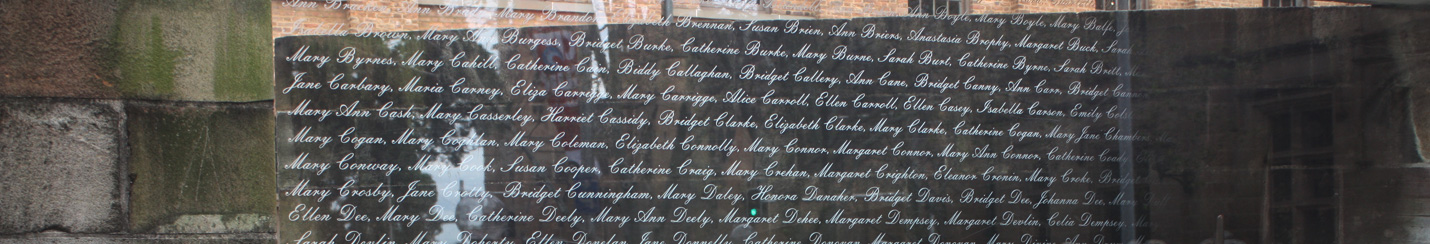 Ann Brien, Mary Brandon, Elizabeth Brennan, Susan Brien, Ann Briers, Anastasia Brophy, Margaret Buck, Sarah
Brown, Mary Ann Burgess, Bridget Burke, Catherine Burke, Mary Burne, Sarah Burt, Catherine Byrne, Sarah Brett,
Ann Boyle, Mary Boyle, Mary Balfe,
Mary Byrnes, Mary Cahill, Catherine Cain, Biddy Callaghan, Bridget Callery, Ann Cane, Bridget Canny, Ann Carr, Bridget
Jane Carbary, Maria Carney, Eliza Carrigge, Mary Carrigge, Alice Carroll, Ellen Carroll, Ellen Casey, Isabella Carson, Emily
Mary Ann Cash, Mary Casserley, Harriet Cassidy, Bridget Clarke, Elizabeth Clarke, Mary Clarke, Catherine Cogan, Mary Jane
Mary Cogan, Mary Coghlan, Mary Coleman, Elizabeth Connolly, Mary Connor, Margaret Connor, Mary Ann Connor, Catherine
Mary Conway, Mary Cook, Susan Cooper, Catherine Craig, Mary Crehan, Margaret Crighton, Eleanor Cronin, Mary Croke,
Mary Crosby, Jane Crotty, Bridget Cunningham, Mary Daley, Honora Danaher, Bridget Davis, Bridget Dee, Johanna Dee,
Ellen Dee, Mary Dee, Catherine Deely, Mary Ann Deely, Margaret Dehee, Margaret Dempsey, Margaret Devlin, Celia Dempsey,
Sarah Devlin, Mary Doherty, Ellen Donelan, Jane Donnelly, Catherine Donovan, Margaret Donovan,